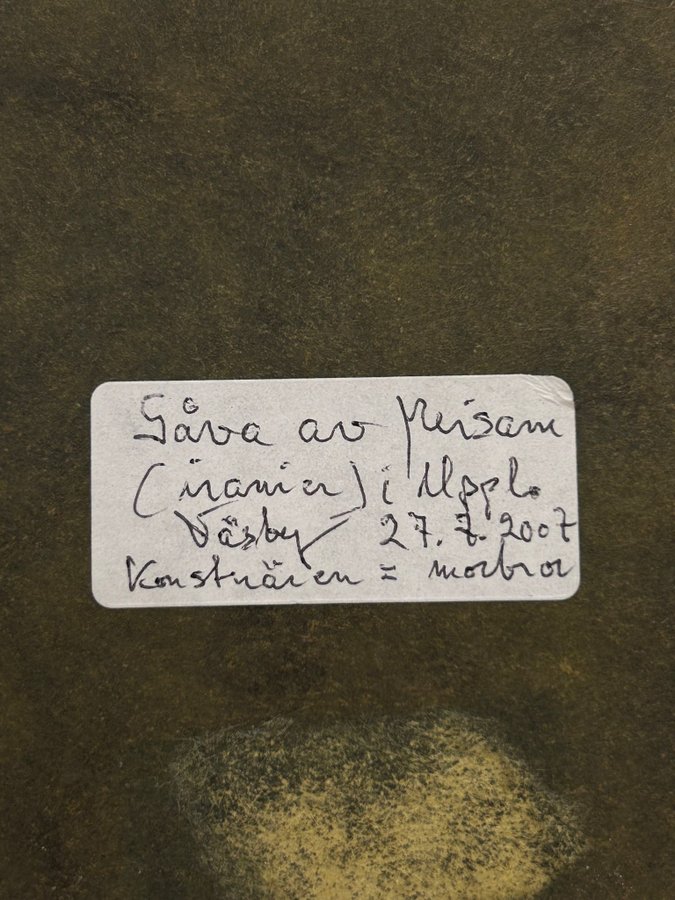 Gåva av Meisam
(iranier) i Uppl.
Väsby 27.7.2007
Konstnären = morbror